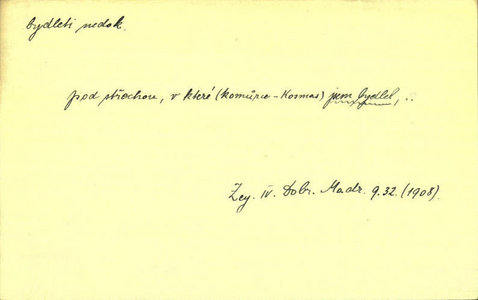 bydleti nedok.
pod střechou, v které (komůrce - Kosmas) jsem bydlel, ..
Zey. IV. Dobr. Madr. 9.32. (1908).